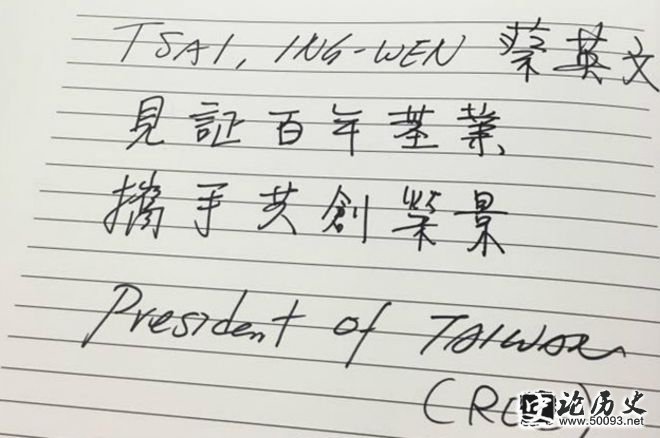 TSAI, ING-WEN 蔡英文
見証百年基業
攜手共創榮景
President of TAIWAN
(ROC)
论历史
www.50093.net